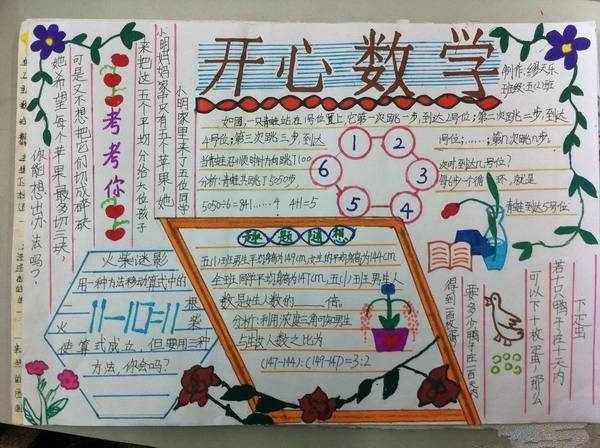 开心数学
制作:缪天乐
班级:五(2)班
如图,一只青蛙站在1号位置上,它第一次跳一步,到达2号位;第二次跳二步,到达
4号位;第三次跳三步,到达
1号位;……;第n次跳n步,
当青蛙沿顺时针方向跳了100
次时,到达几号位?
分析:青蛙共跳了5050步,
每6步一个循环,就是
5050÷6=841……4 4+1=5
青蛙到达5号位
1
2
3
4
5
6
考考你
小明家里来了五位同学
小明妈妈家中只有五个苹果,她
来把这五个平均分给六位孩子
可是又不想把它们切成碎块
她希望每个苹果最多切三块,
你能想出办法吗?
趣题遐想
五(1)班男生平均身高为147cm,女生的平均身高为144cm
全班同学平均身高为147cm,五(1)班男生人
数是女生人数的____倍。
分析:利用浓度三角可知男生
与女生人数之比为
(147-144):(149-147)=3:2
火柴迷影
用一种方法移动算式中的
一根
火柴
11-10=11
使算式成立,但要用三种
方法,你会吗?
下蛋
若十只鸭子在十天内
可以下十枚蛋,那么
要多少鸭子在一百天内
得到一百枚蛋?